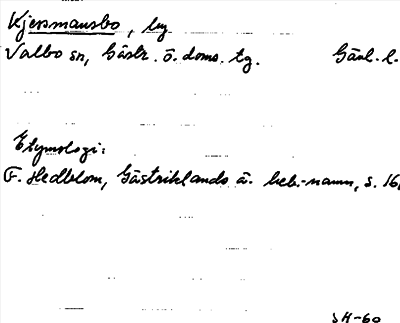 Kjersmansbo, by
Valbo sn, Gästr. ö. doms. tg. Gävl. l.
Etymologi:
F. Hedblom, Gästriklands ä. beb.-namn, s. 16
SH-60